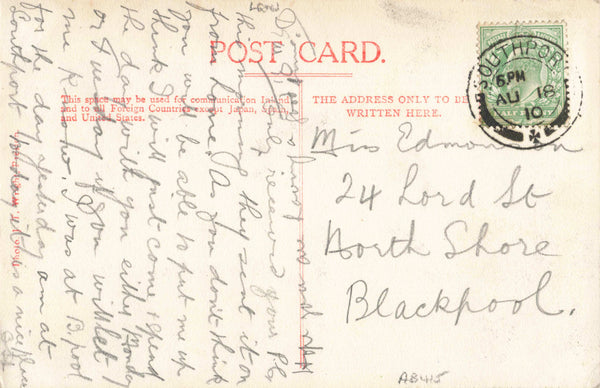 POST CARD.
This space may be used for communication Inland
and to all Foreign Countries except Japan, Spain
and United States.
THE ADDRESS ONLY TO BE
WRITTEN HERE.
SOUTHPORT
6 PM
AU 18
10
Miss Edmon
24 Lord St
North Shore
Blackpool.
received your P.C.
this morning they sent it on
from home. As you don't think
you will be able to put me up
think I will just come & spend
the day with you either Monday
or Tuesday if you will let
me know. I was at B'pool
for the day yesterday am at
Southport now it is a nice place
A8415